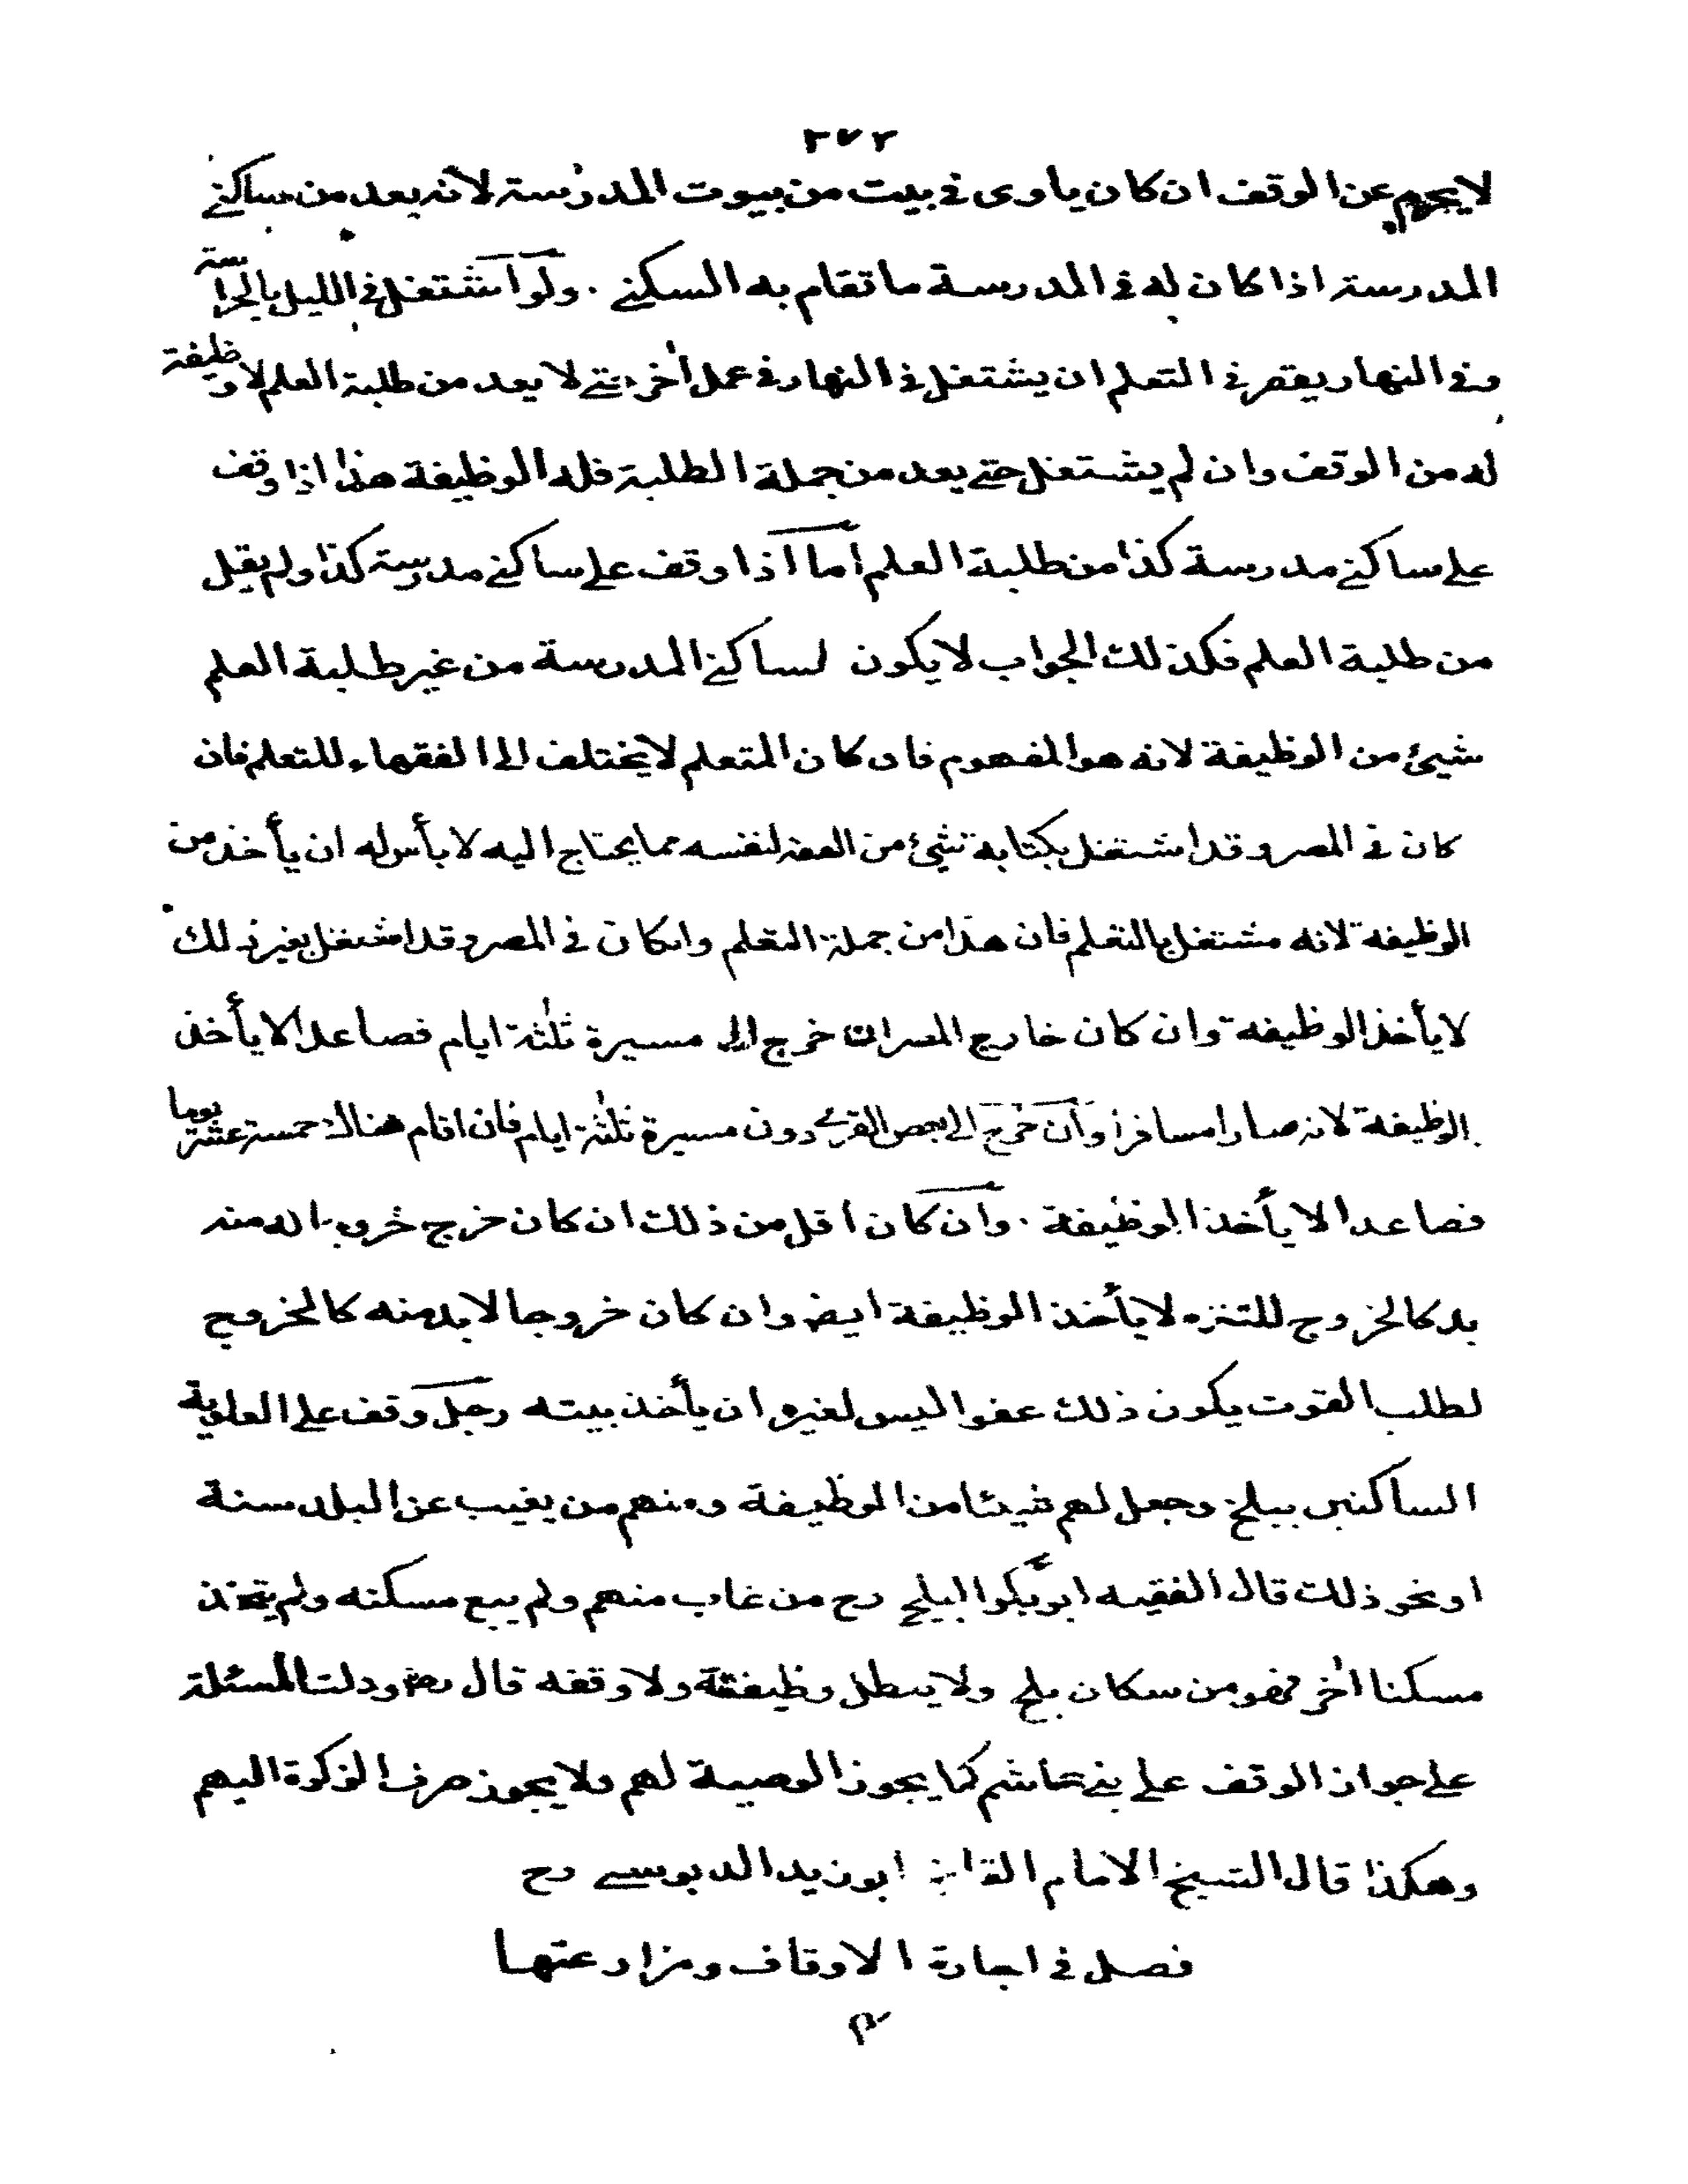 ٢٧٢
لا يحرم عن الوقف ان كان ياوى فى بيت من بيوت المدرسة لانه يعد من ساكنى
المدرسة اذا كان له فى المدرسة ما تقام به السكنى . ولو اشتغل فى الليل بالحراسة
وفى النهار يقصر فى التعلم ان يشتغل فى النهار فى عمل اٰخر حتى لا يعد من طلبة العلم لا وظيفة
له من الوقف وان لم يشتغل حتى يعد من جملة الطلبة فله الوظيفة هذا اذا وقف
على ساكنى مدرسة كذا من طلبة العلم اما اذا وقف على ساكنى مدرسة كذا ولم يقل
من طلبة العلم فكذلك الجواب لا يكون لساكنى المدرسة من غير طلبة العلم
شيئ من الوظيفة لانه هو المفهوم فان كان المتعلم لا يختلف الى الفقهاء للتعلم فان
كان فى المصر وقد اشتغل بكتابة شيئ من الفقه لنفسه مما يحتاج اليه لا بأس له ان يأخذ من
الوظيفة لانه مشتغل بالتعلم فان هذا من جملة التعلم وان كان فى المصر وقد اشتغل بغير ذلك
لا يأخذ الوظيفة وان كان خارج المصر ان خرج الى مسيرة ثلٰثة ايام فصاعدا لا يأخذ
الوظيفة لانه صار مسافرا وان خرج الى بعض القرى دون مسيرة ثلٰثة ايام فان اقام هناك خمسة عشر يوما
فصاعدا لا يأخذ الوظيفة . وان كان اقل من ذلك ان كان خرج خروجا له منه
بد كالخروج للتنزه لا يأخذ الوظيفة ايض وان كان خروجا لا بد منه كالخروج
لطلب القوت يكون ذلك عفوا ليس لغيره ان يأخذ بيته رجل وقف على العلوية
الساكنين ببلخ وجعل لهم شيئا من الوظيفة ومنهم من يغيب عن البلد سنة
او نحو ذلك قال الفقيه ابو بكر البلخى رح من غاب منهم ولم يبع مسكنه ولم يتخذ
مسكنا اٰخر فهو من سكان بلخ ولا يبطل وظيفته ولا وقفه قال رض ودلت المسئلة
على جواز الوقف على بنى هاشم كما يجوز الوصية لهم ولا يجوز صرف الزكوة اليهم
وهكذا قال الشيخ الامام القاضى ابو زيد الدبوسى رح
فصل فى اجارة الاوقاف ومزارعتها